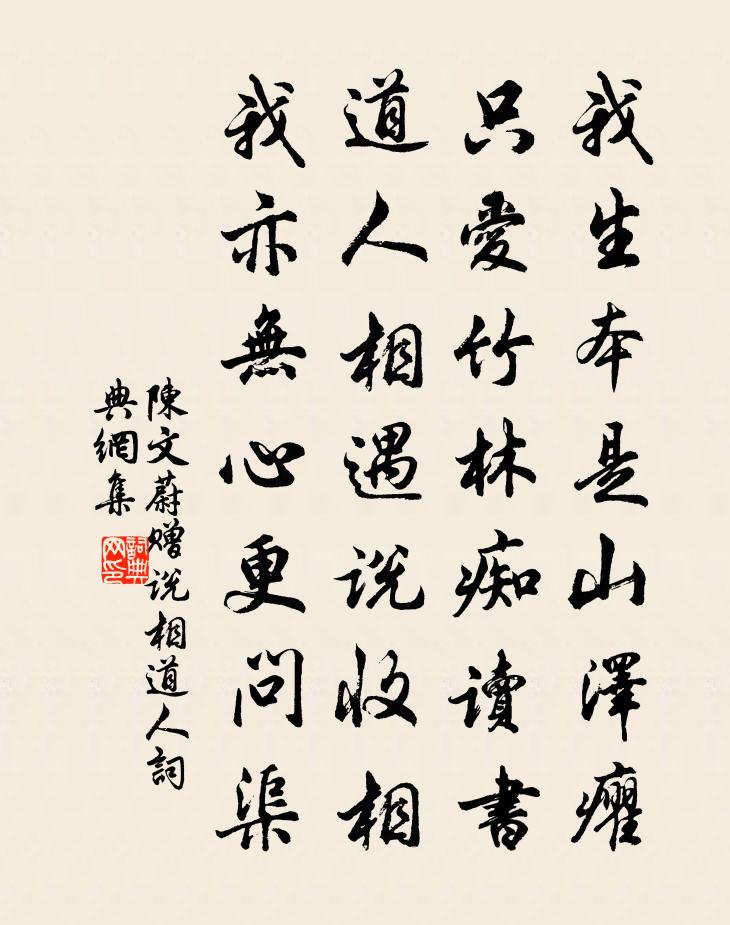 我生本是山澤癯
只愛竹林痴讀書
道人相遇説收相
我亦無心更問渠
陳文蔚赠说相道人詞
典網集
詞典网印